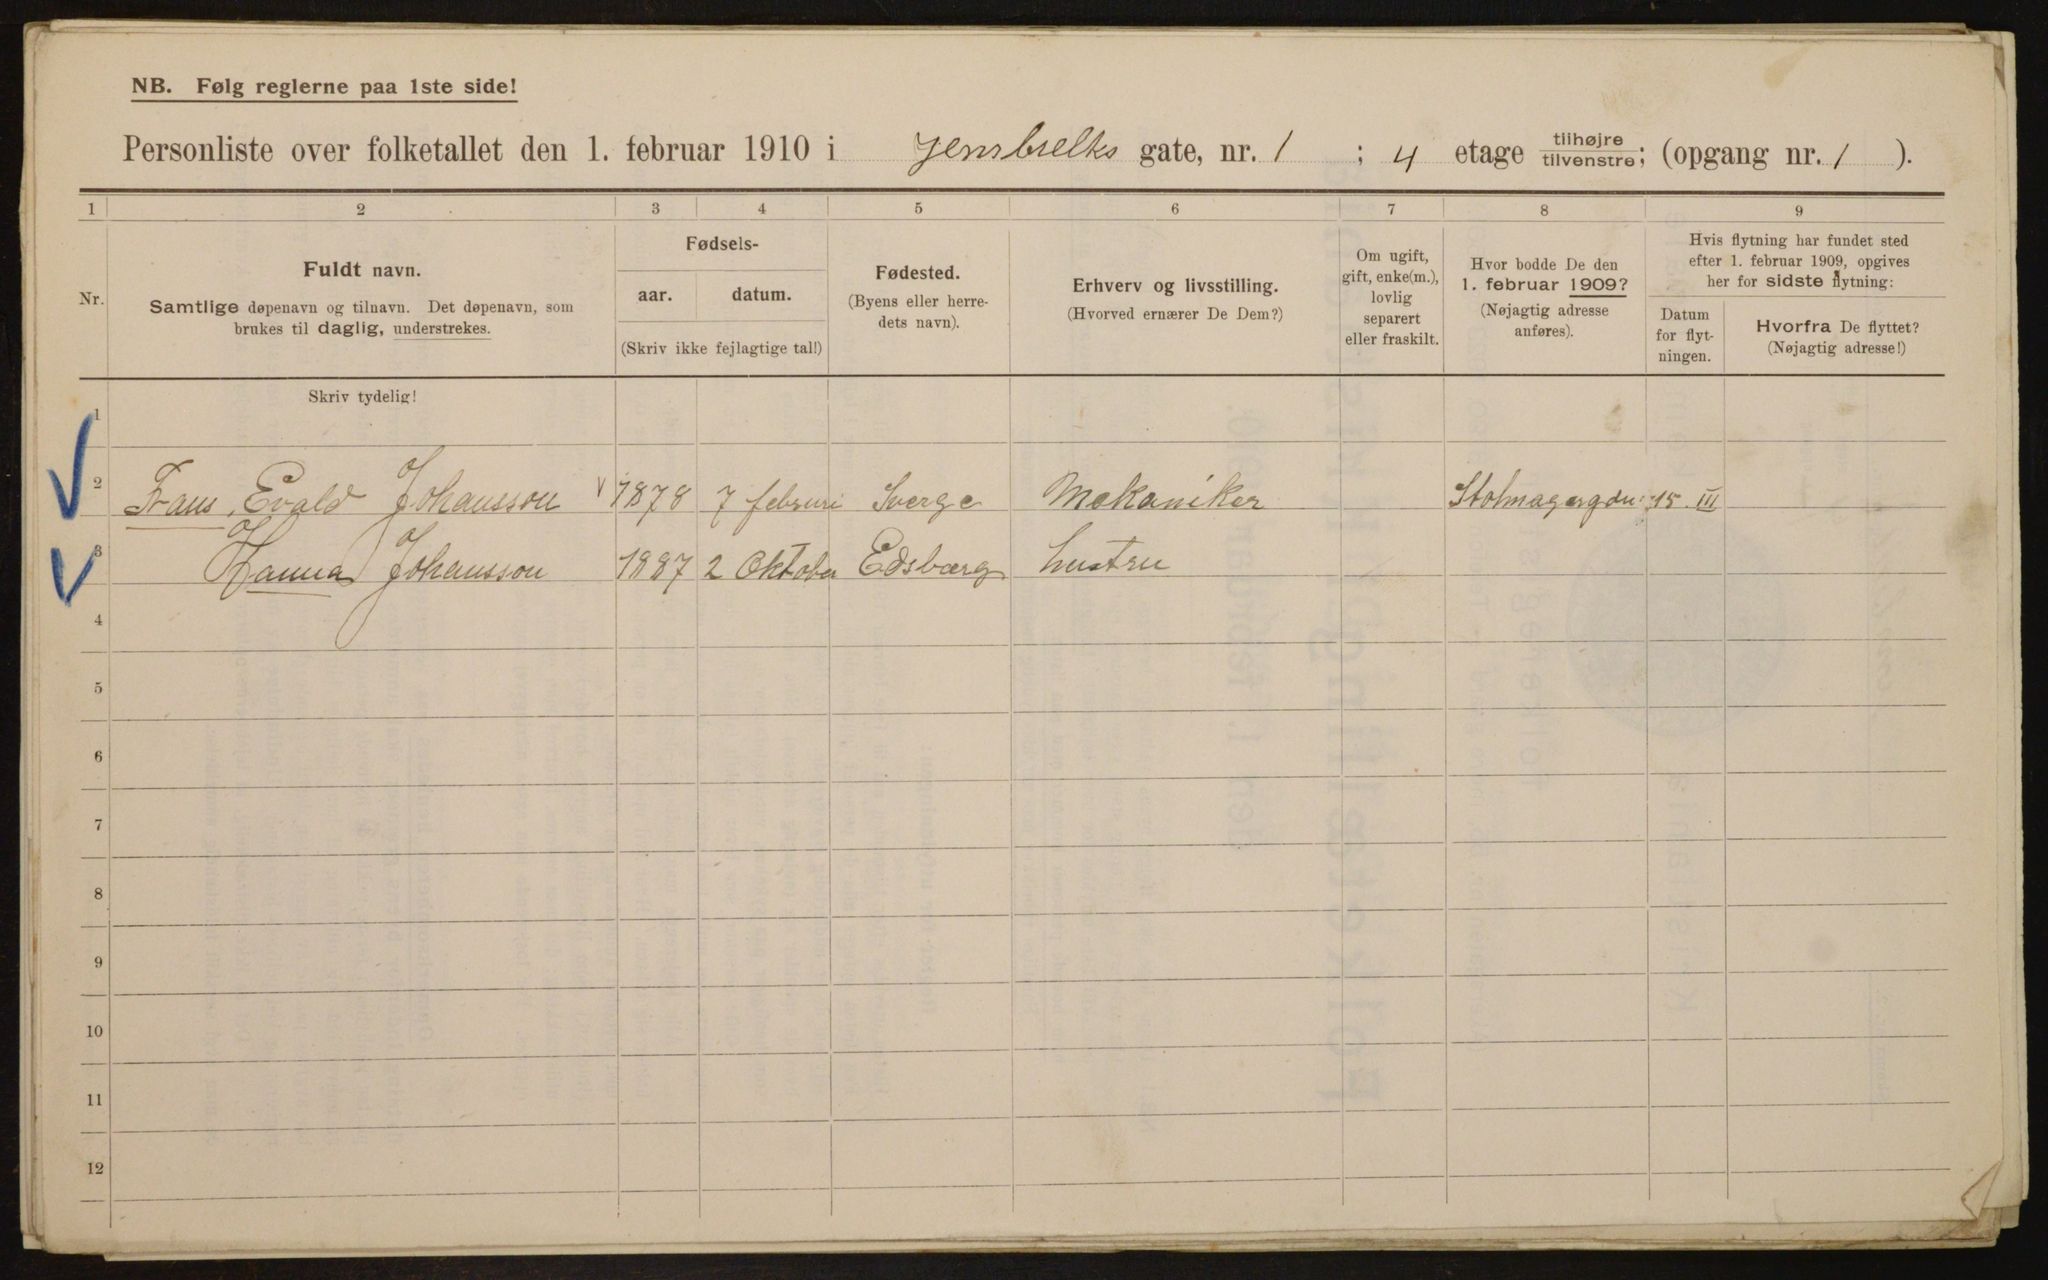 NB. Følg reglerne paa 1ste side!
Personliste over folketallet den 1. februar 1910 i Jensbielks gate, nr. 1 ; 4 etage tilhøjre tilvenstre; (opgang nr. 1 ).
1 2 3 4 5 6 7 8 9
Nr.
Fuldt navn.
Samtlige døpenavn og tilnavn. Det døpenavn, som
brukes til daglig, understrekes.
Fødsels-
aar. datum.
(Skriv ikke fejlagtige tal!)
Fødested.
(Byens eller herre-
dets navn).
Erhverv og livsstilling.
(Hvorved ernærer De Dem?)
Om ugift,
gift, enke(m.),
lovlig
separert
eller fraskilt.
Hvor bodde De den
1. februar 1909?
(Nøjagtig adresse
anføres).
Hvis flytning har fundet sted
efter 1. februar 1909, opgives
her for sidste flytning:
Datum
for flyt-
ningen.
Hvorfra De flyttet?
(Nøjagtig adresse!)
Skriv tydelig!
1
2 Frans, Evald Johansson 1878 7 februri Sverge Mekaniker Stolmagergdn: 15 III
3 Hanna Johansson 1887 2 Oktober Edsbærg hustru
4
5
6
7
8
9
10
11
12